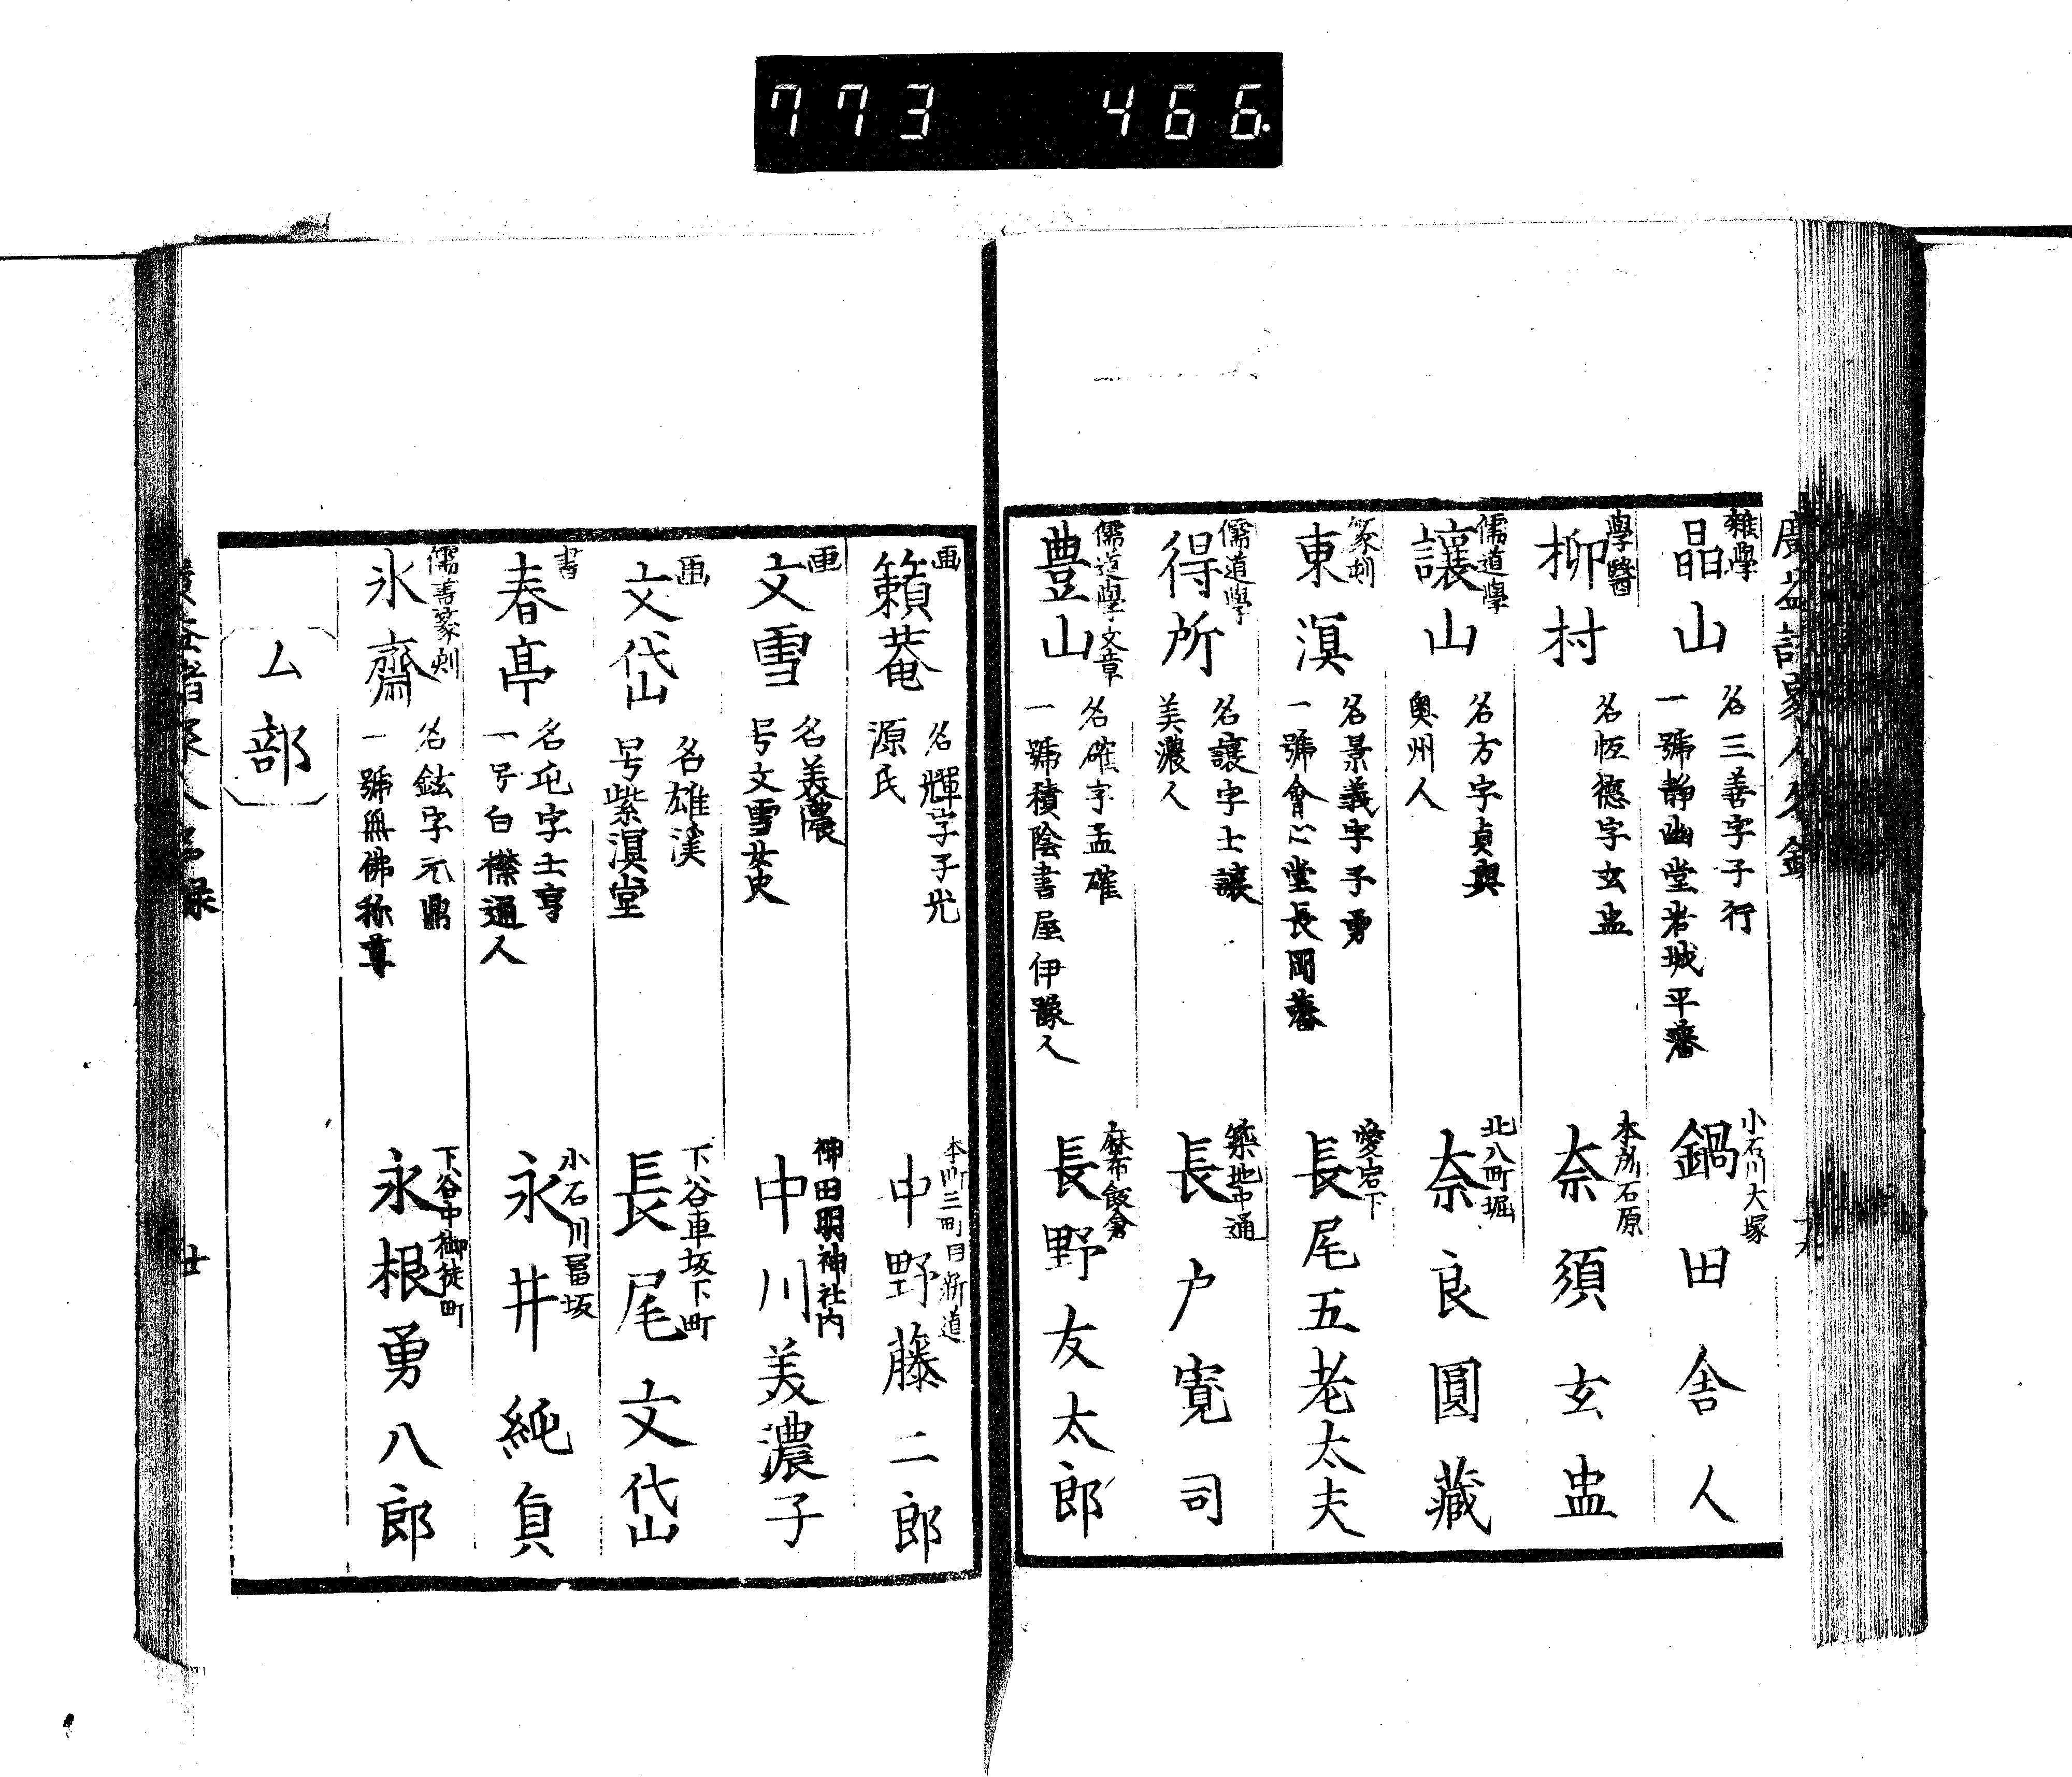 773 466.
雜學
晶山
名三善字子行
一號靜幽堂岩城平藩
小石川大塚
鍋田舎人
學醫
柳村
名恆德字玄盅
本所石原
奈須玄盅
儒道學
讓山
名方字貞與
奧州人
北八町堀
奈良圓藏
篆刻
東溟
名景義字子勇
一號會心堂長岡藩
愛宕下
長尾五老太夫
儒道學
得所
名讓字士讓
美濃人
築地中通
長戸寛司
儒道學文章
豊山
名確字孟確
一號積陰書屋伊豫人
麻布飯倉
長野友太郎
画
籟菴
名輝字子光
源氏
本町三町目新道
中野藤二郎
画
文雪
名美濃
号文雪女史
神田明神社内
中川美濃子
画
文岱
名雄溪
号紫溟堂
下谷車坂下町
長尾文岱
書
春亭
名屯字士亨
一号白襟通人
小石川冨坂
永井純貞
儒書篆刻
氷齋
名鉉字元鼎
一號無佛称尊
下谷中御徒町
永根勇八郎
ム部